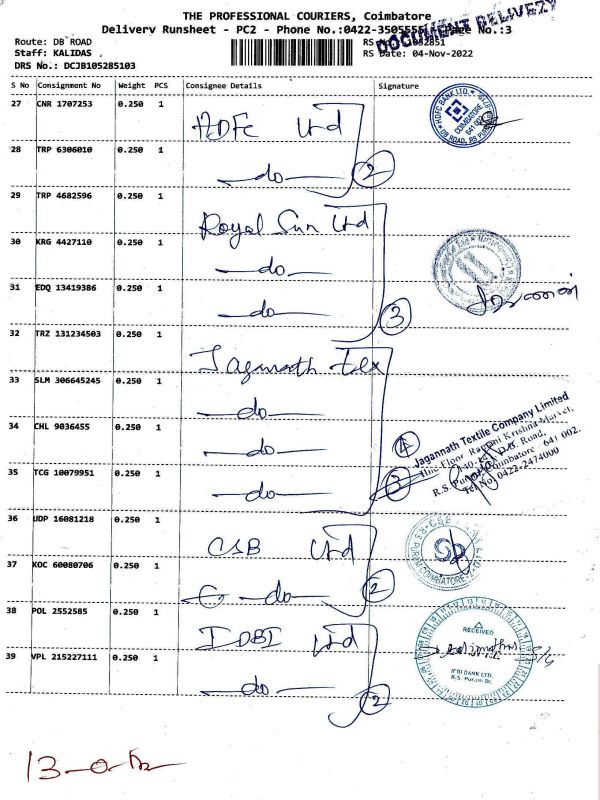 THE PROFESSIONAL COURIERS, Coimbatore
Delivery Runsheet - PC2 - Phone No.:0422-350555 Page No.:3
DOCUMENT DELIVEZY
Route: DB ROAD
Staff: KALIDAS
RS Date: 04-Nov-2022
DRS No.: DCJB105285103
S No Consignment No Weight PCS Consignee Details Signature
27 CNR 1707253 0.250 1 HDFC Ltd
28 TRP 6306010 0.250 1 do 2
HDFC BANK LTD.
COIMBATORE
29 TRP 4682596 0.250 1 Royal Sun Ltd
30 KRG 4427110 0.250 1 do
31 EDQ 13419386 0.250 1 do 3
32 TRZ 131234503 0.250 1 Jagannath Tex
33 SLM 306645245 0.250 1 do
34 CHL 9036455 0.250 1 do 4
35 TCG 10079951 0.250 1 do
Jagannath Textile Company Limited
R.S. Puram, Coimbatore - 641 002.
Tel No: 0422-2474000
36 UDP 16081218 0.250 1 CSB Ltd
37 KOC 60080706 0.250 1 do 2
38 POL 2552585 0.250 1 IDBI Ltd
39 VPL 215227111 0.250 1 do 2
RECEIVED
IDBI BANK LTD.
R.S. Puram Br.